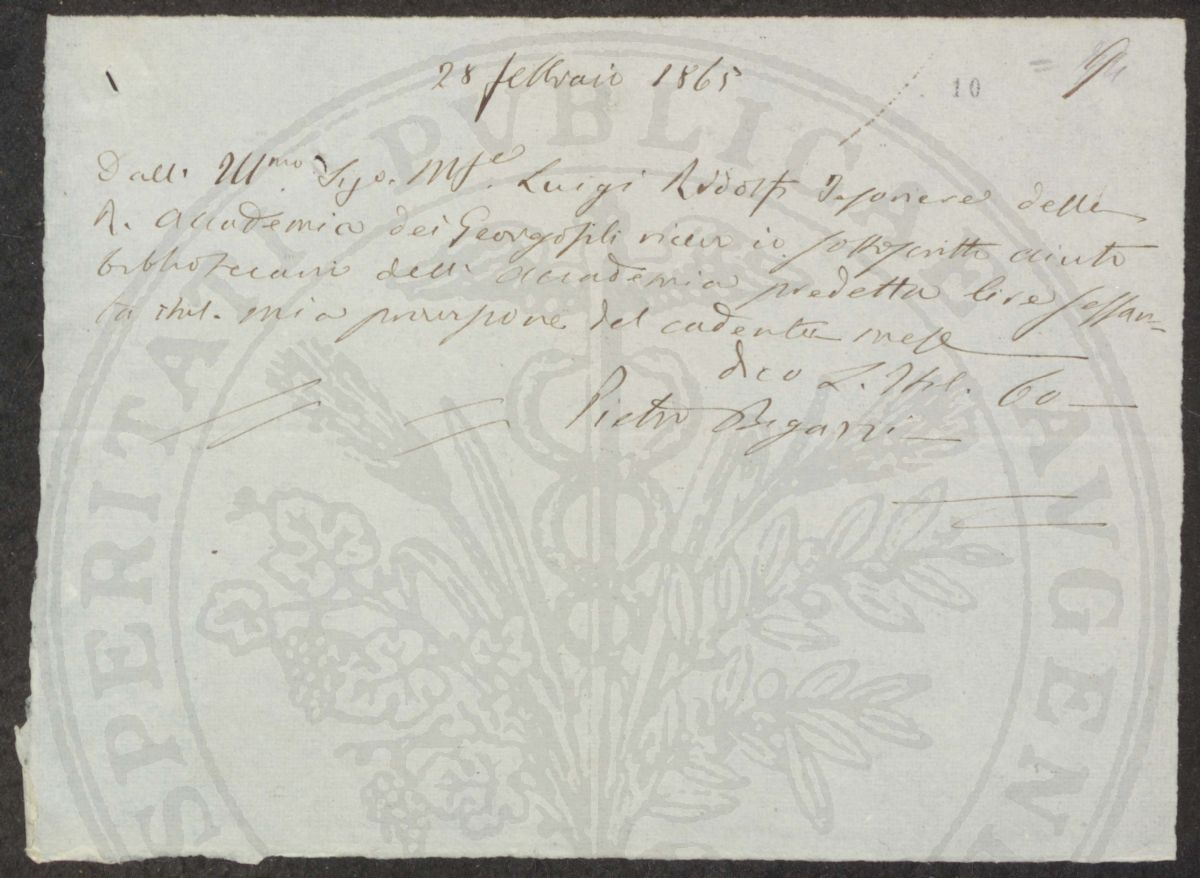 28 febbraio 1865
10
Dall' Ill.mo Sig. M.se Luigi Ridolfi Tesoriere della
R. Accademia dei Georgofili ricevo io sottoscritto aiuto
bibliotecario dell' accademia predetta lire sessan-
ta ital. mia provvisione del cadente mese
dico L. Ital. 60
Pietro Bigazzi
PROSPERITATI PUBLICAE AUGEN